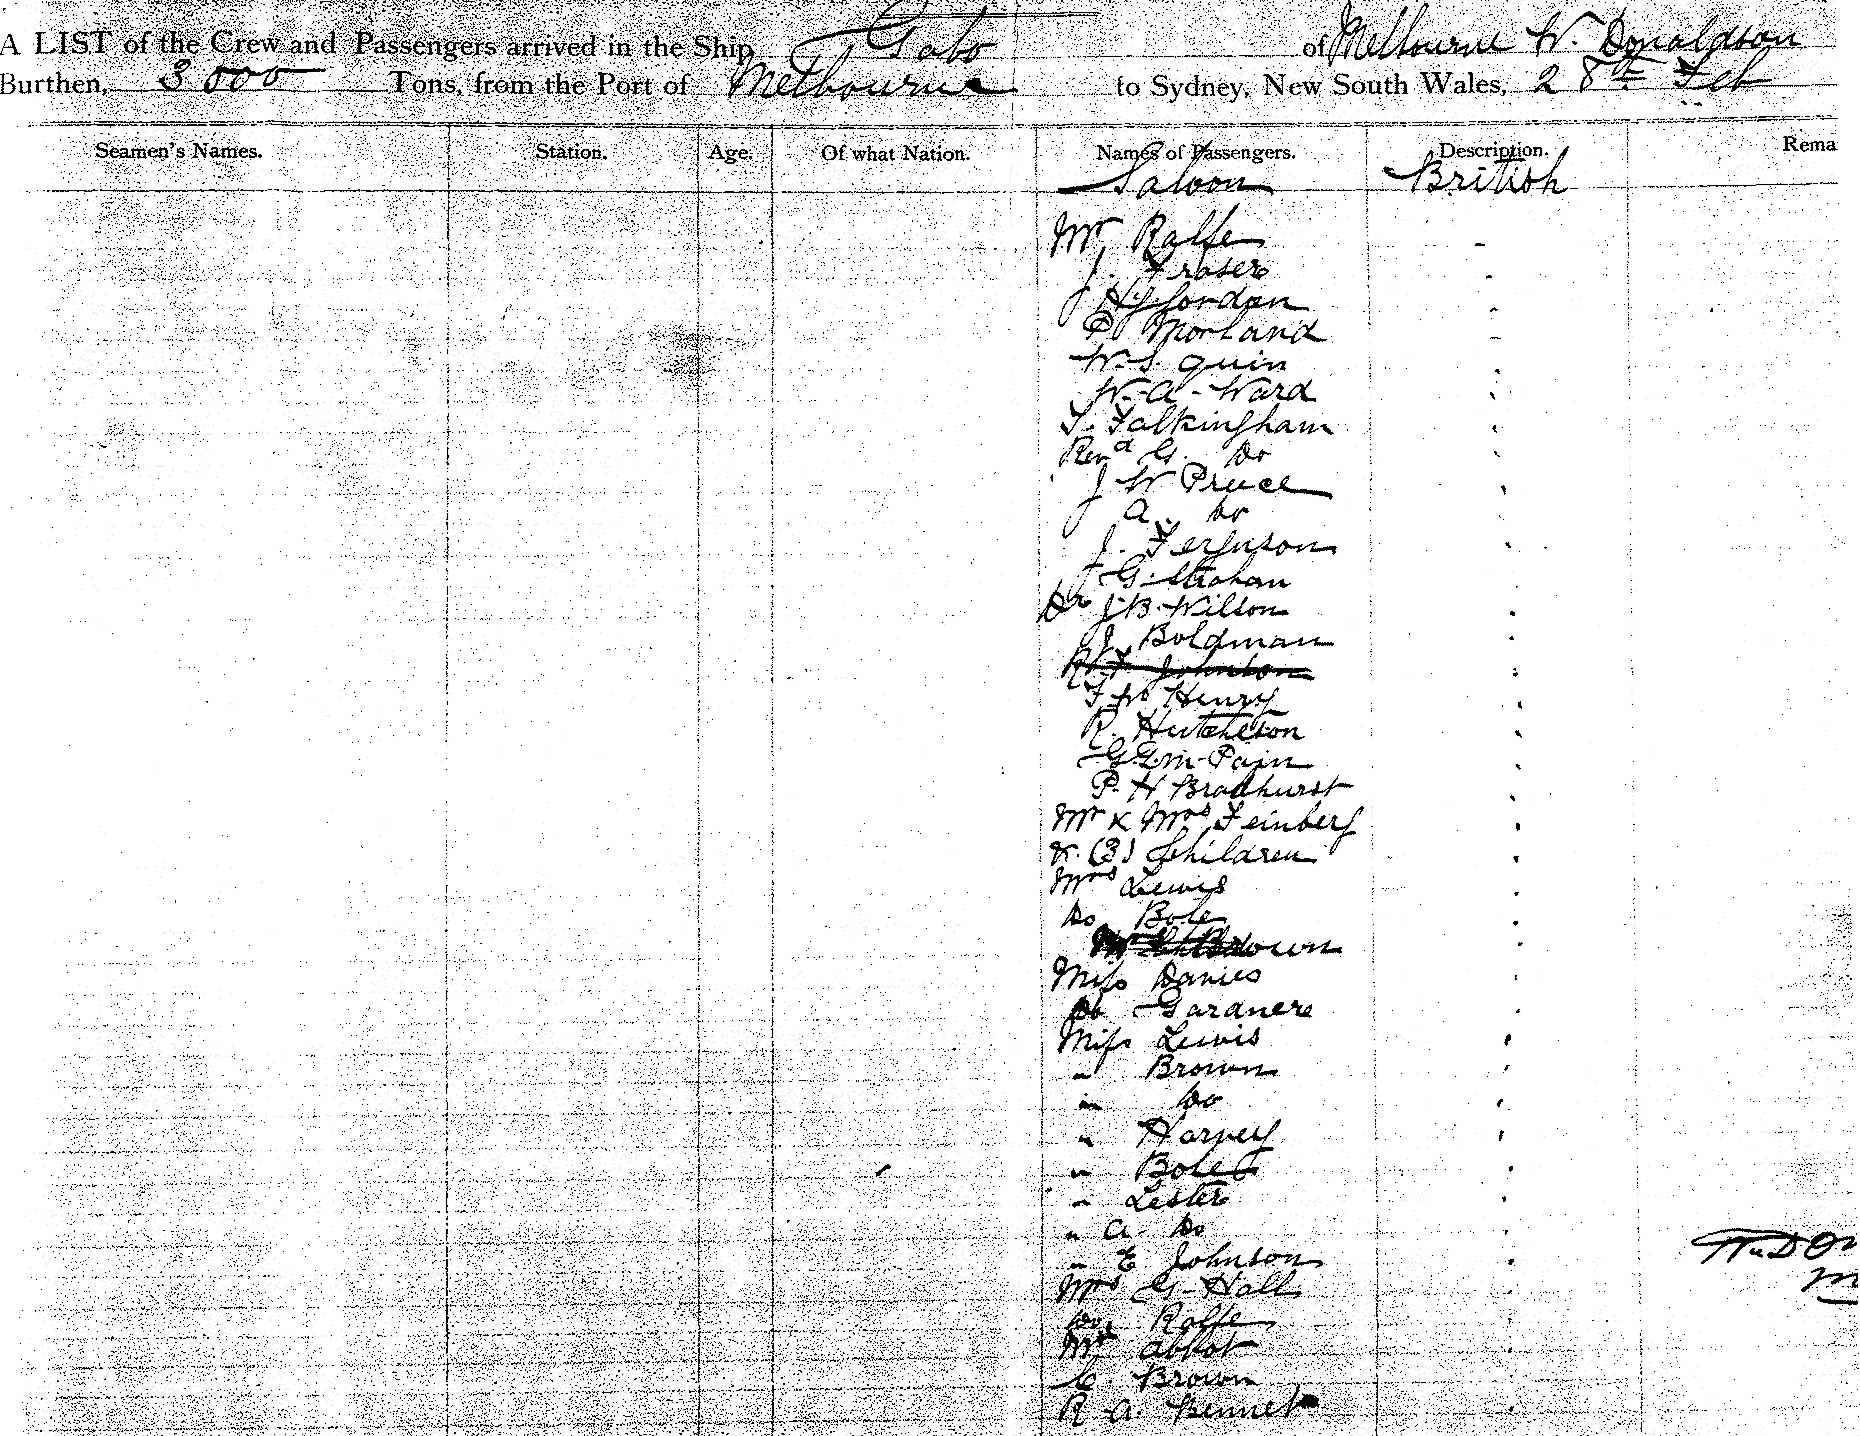 A LIST of the Crew and Passengers arrived in the Ship Gabo of Melbourne W. Donaldson
Burthen, 3000 Tons, from the Port of Melbourne to Sydney, New South Wales, 28th Feb
Seamen's Names. Station. Age. Of what Nation. Names of Passengers. Description. Rema
Saloon British
Mr Rolfe
J. Fraser
H. J. Jordan
P Morland
W. S. Quin
W. A. Ward
J. Falkingham
Revd G. Do
J W Pruce
A. Do
J. Ferguson
G. Strahan
Dr J. B. Wilson
J. Boldman
R. F. Johnson
F W Henry
R. Hutcheson
G G. M. Pain
P. H Bradhurst
Mr & Mrs Feinberg
& (3) Children
Mrs Lewis
Do Bole
Brown
Miss Davies
Do Gardnere
Miss Lewis
" Brown
" Do
" Harvey
" Bole
" Lester
" A. Do
" E Johnson
Mrs G. Hall
Do Rolfe
Mr Abbot
C. Brown
R A. Bennet